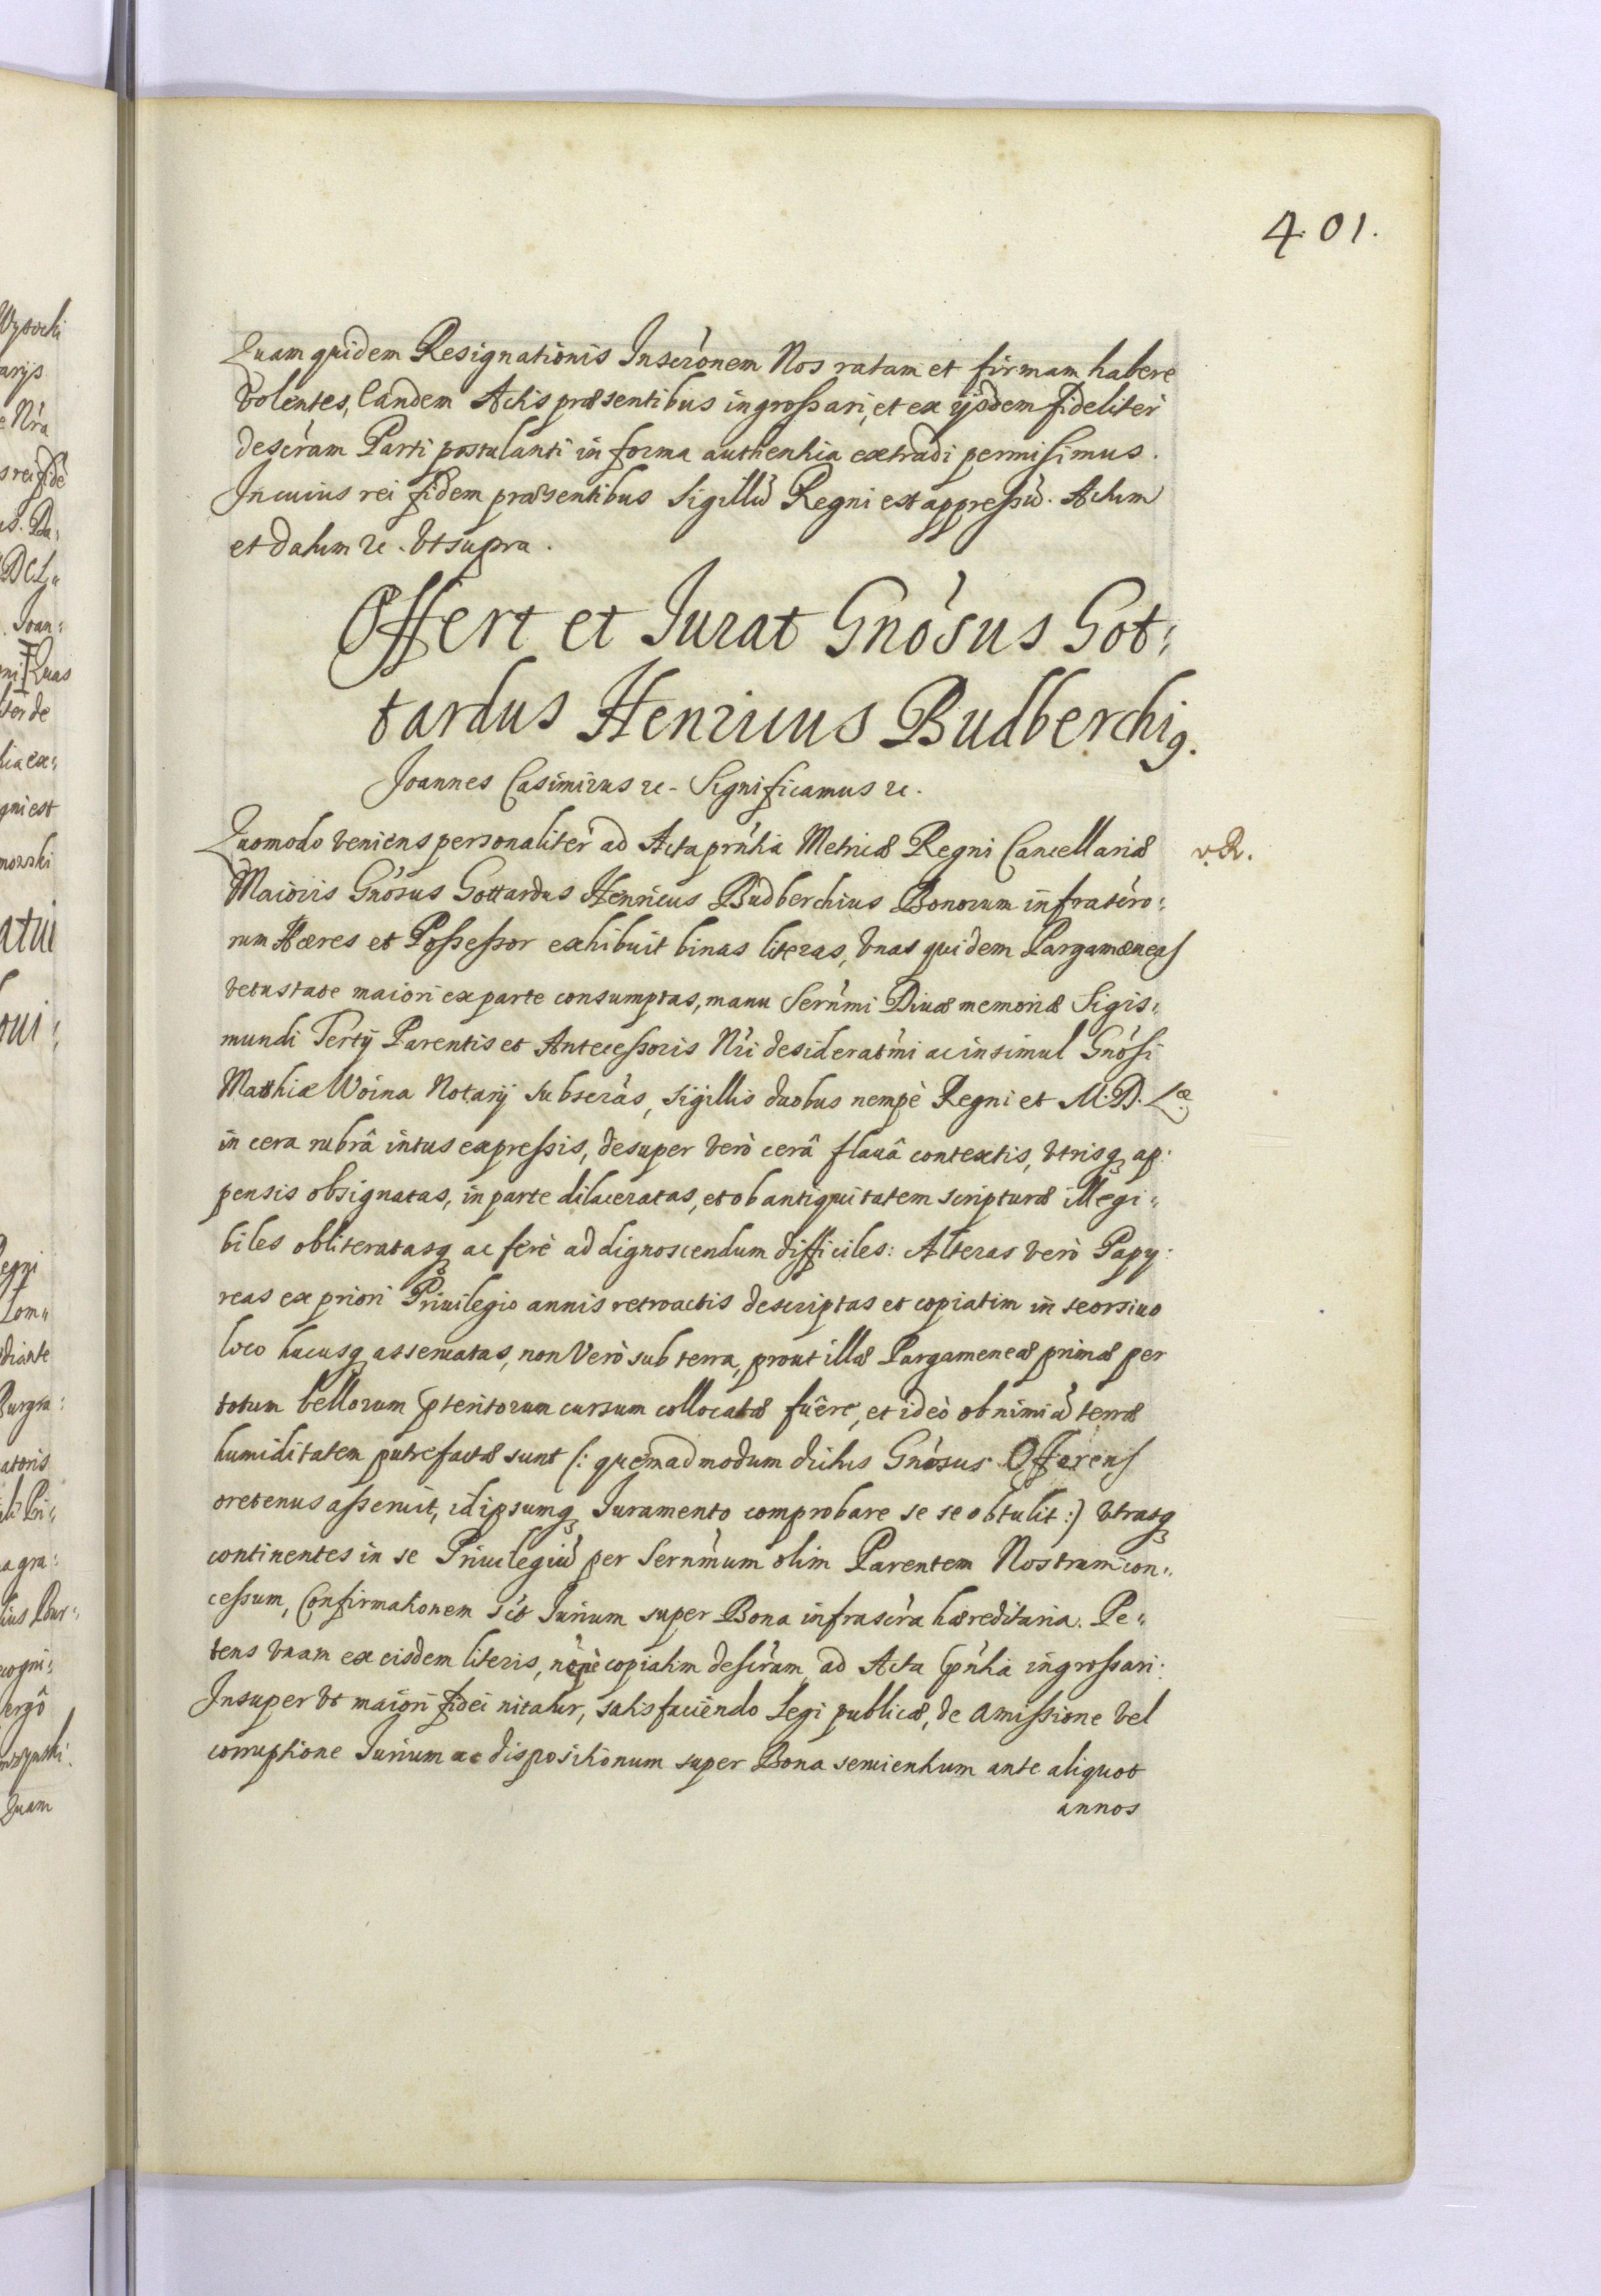 401.
Quam quidem Resignationis Inscr̃onem Nos ratam et firmam habere
Volentes, Eandem Actis præsentibus ingrossari, et ex ijsdem fideliter
descr̃am Parti postulanti in forma authentica extradi permisimus.
In cuius rei fidem præsentibus Sigillũ Regni est appressũ. Actum
et datum &c. Vt supra.
Offert et Jurat Gnõsus Got:
tardus Henricus Budberchi9.
Joannes Casimirus &c. Significamus &c.
Quomodo veniens personaliter ad Acta prñtia Metricæ Regni Cancellariæ
v. R.
Maioris Gnõsus Gottardus Henricus Budberchius Bonorum infrascr̃o:
rum Hæres et Possessor exhibuit binas literas, Vnas quidem Pargamæneas
vetustate maiori ex parte consumptas, manu Serñmi Diuæ memoriæ Sigis:
mundi Tertij Parentis et Antecessoris Nr̃i desideratm̃i ac insimul Gnõsi
Matthiæ Woina Notarij subscr̃as, sigillis duobus nempè Regni et M. D. Læ
in cera rubrâ intus expressis, desuper verò cerâ flauâ contextis, vtrisq ap:
pensis obsignatas, in parte dilaceratas, et ob antiquitatem scripturæ illegi:
biles obliteratasq ac ferè ad dignoscendum difficiles: Alteras verò Papy:
reas ex priori Priuilegio annis retroactis descriptas et copiatim in seorsiuo
loco hucusq asseruatas, non Verò sub terra, prout illæ Pargameneæ primæ per
totum bellorum p̃teritorum cursum collocatæ fuêre, et ideò ob nimiã terræ
humiditatem putrefactæ sunt (: quemadmodum dictus Gnõsus Offerens
oretenus asseruit, id ipsumq Juramento comprobare se se obtulit :) vtrasq
continentes in se Priuilegiũ per Serñmum olim Parentem Nostrum con:
cessum, Confirmationem sc̃t Jurium super Bona infrascr̃a hæreditaria. Pe:
tens vnam ex eisdem literis, nẽpè copiatim descr̃am ad Acta p̃ñtia ingrossari:
Insuper vt maiori fidei nitatur, satisfaciendo Legi publicæ, de amissione vel
corruptione Jurium ac dispositionum super Bona seruientium ante aliquot
annos